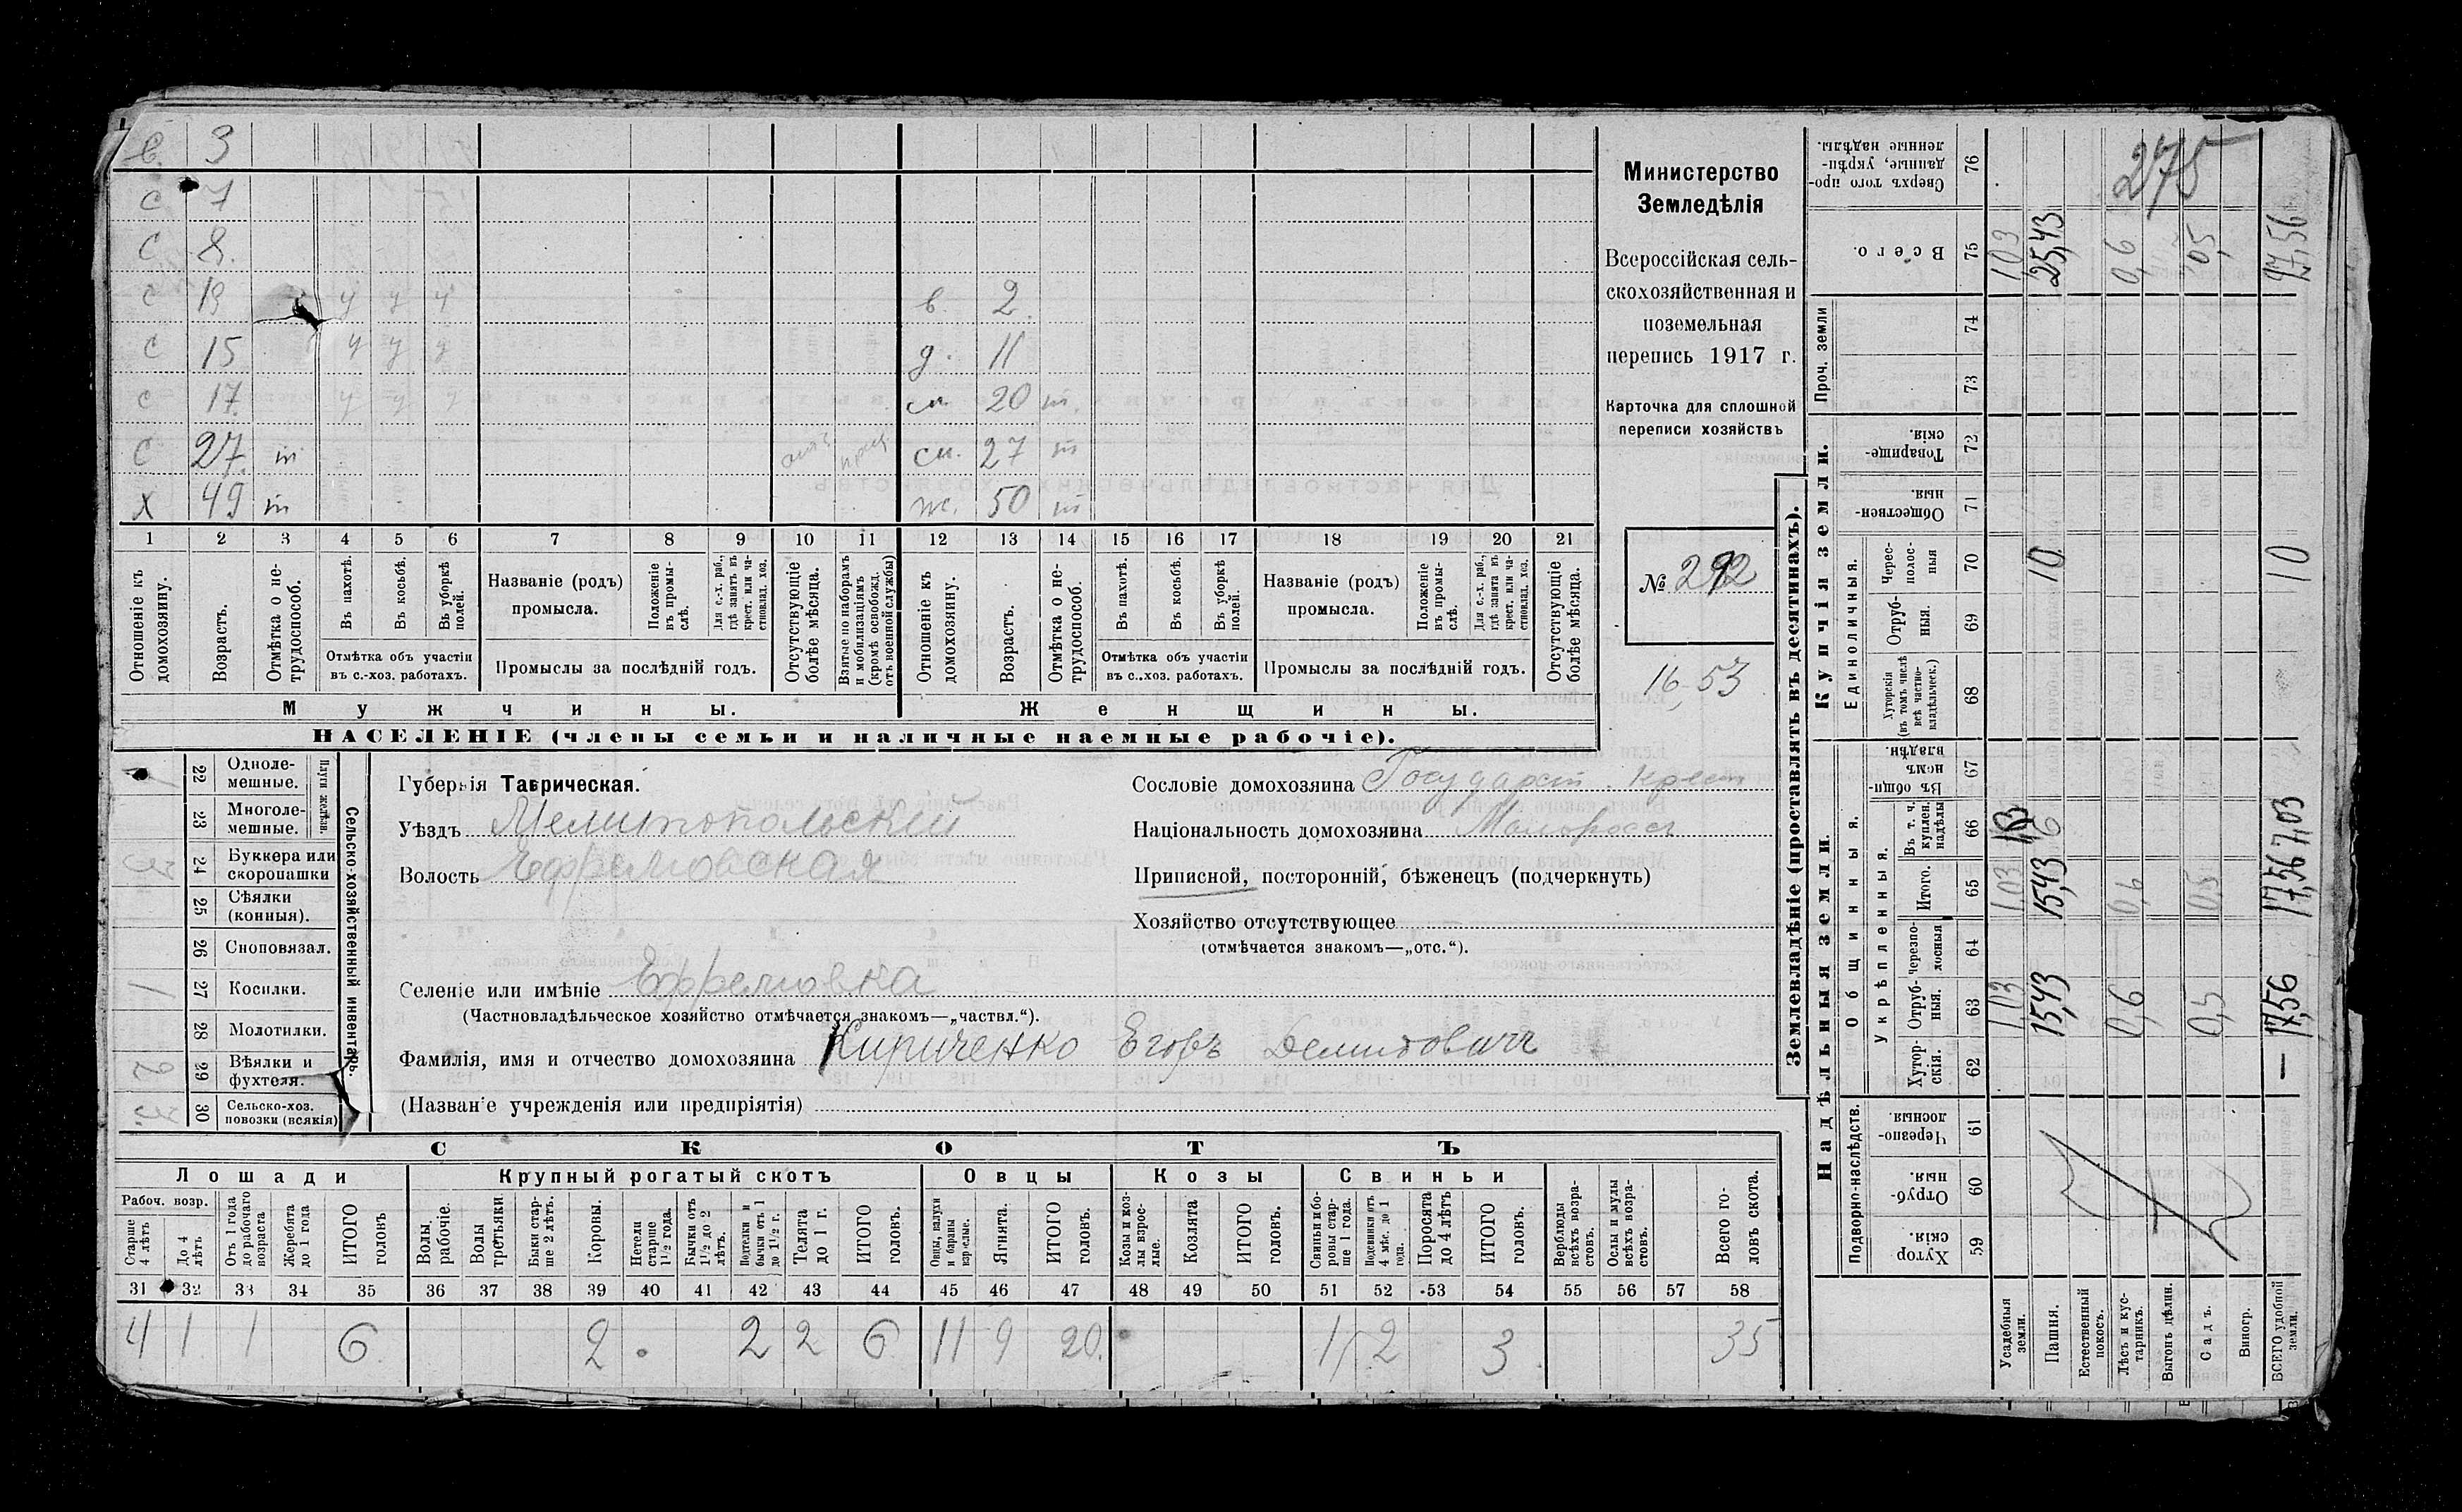 в. 3
с 7
с 8.
с 19 у у у в. 2
с 15 у у у д. 11
с 17. у у у сн. 20 ш.
с 27. ш сн. 27 ш
х 49 ш ж. 50 ш
1 2 3 4 5 6 7 8 9 10 11 12 13 14 15 16 17 18 19 20 21
Отношеніе къ домохозяину.
Возрастъ.
Отмѣтка о не-трудоспособ.
Въ пахотѣ.
Въ косьбѣ.
Въ уборкѣ полей.
Отмѣтка объ участіи
въ с.-хоз. работахъ.
Названіе (родъ)
промысла.
Положеніе въ промы-слѣ.
Для с.-х. раб., гдѣ занятъ въ крест. или ча-стновлад. хоз.
Промыслы за послѣдній годъ.
Отсутствующіе болѣе мѣсяца.
Взятые по наборамъ и мобилизаціямъ (кромѣ освобожд. отъ военной службы)
Отношеніе къ домохозяину.
Возрастъ.
Отмѣтка о не-трудоспособ.
Въ пахотѣ.
Въ косьбѣ.
Въ уборкѣ полей.
Отмѣтка объ участіи
въ с..хоз. работахъ.
Названіе (родъ)
промысла.
Положеніе въ промы-слѣ.
Для с.-х. раб., гдѣ занята въ крест. или ча-стновлад. хоз.
Промыслы за послѣдній годъ.
Отсутствующіе болѣе мѣсяца.
Мужчины.
Женщины.
НАСЕЛЕНІЕ (члены семьи и наличные наемные рабочіе).
Министерство
Земледѣлія
Всероссійская сель-
скохозяйственная и
поземельная
перепись 1917 г.
Карточка для сплошной
переписи хозяйствъ
№ 292
16-53
22 Одноле-мешные.
23 Многоле-мешные.
Плуги желѣзн.
24 Буккера или скоропашки
25 Сѣялки (конныя).
26 Сноповязал.
27 Косилки. 1
28 Молотилки.
29 Вѣялки и фухтеля. 2
30 Сельско-хоз. повозки (всякія) 3.
Сельско-хозяйственный инвентарь.
Губернія Таврическая.
Уѣздъ Мелитопольскій
Волость Ефремовская
Селеніе или имѣніе Ефремовка
(Частновладѣльческое хозяйство отмѣчается знакомъ—„частвл.“).
Фамилія, имя и отчество домохозяина Кириченко Егоръ Демидовичъ
(Названіе учрежденія или предпріятія)
Сословіе домохозяина Государст. крест
Національность домохозяина Малороссъ
Приписной, посторонній, бѣженецъ (подчеркнуть)
Хозяйство отсутствующее
(отмѣчается знакомъ—„отс.“).
СКОТЪ
Лошади
Крупный рогатый скотъ
Овцы
Козы
Свиньи
Рабоч. возр.
Старше 4 лѣтъ
До 4 лѣтъ
Отъ 1 года до рабочаго возраста
Жеребята до 1 года
ИТОГО головъ
Волы рабочіе.
Волы третьяки.
Быки стар-ше 2 лѣтъ.
Коровы.
Нетели старше 1½ года.
Бычки отъ 1½ до 2 лѣтъ.
Подтелки и бычки отъ 1 до 1½ г.
Телята до 1 г.
ИТОГО головъ.
Овцы, валухи и бараны взрослые.
Ягнята.
ИТОГО головъ.
Козы и коз-лы взрос-лые.
Козлята
ИТОГО головъ.
Свиньи и бо-ровы стар-ше 1 года.
Подсвинки отъ 4 мѣс. до 1 года.
Поросята до 4 лѣтъ
ИТОГО головъ.
Верблюды всѣхъ возра-стовъ.
Ослы и мулы всѣхъ возра-стовъ.
Всего го-ловъ скота.
31 32 33 34 35 36 37 38 39 40 41 42 43 44 45 46 47 48 49 50 51 52 53 54 55 56 57 58
4 1 1 6 2 2 2 6 11 9 20. 1 2 3 35
Землевладѣніе (проставлять въ десятинахъ).
Надѣльныя земли.
Купчія земли.
Проч. земли
Подворно-наслѣдств.
Общинныя.
Укрѣпленныя.
Единоличныя.
Хутор-скія. 59
Отруб-ныя. 60
Черезпо-лосныя 61
Хутор-скія. 62
Отруб-ныя. 63
Черезпо-лосныя 64
Итого. 65
Въ т. ч. куплен. надѣлы 66
Въ общин-номъ владѣн. 67
Хуторскія (въ томъ числѣ всѣ частно-владѣльческ.) 68
Отруб-ныя. 69
Черес-полос-ныя 70
Обществен-ныя 71
Товарище-скія. 72
73
74
Всего. 75
Сверхъ того про-данные, укрѣп-ленные надѣлы. 76
275
Усадебныя земли. 1,03 1,03 103
Пашня. 15,43 15,43 6 10 25,43
Естественный покосъ.
Лѣсъ и кус-тарникъ. 0,6 0,6 0,6
Выгонъ цѣлин.
Садъ. 0,5 0,5 05
Виногр.
ВСЕГО удобной земли. — 17,56 17,56 7,03 10